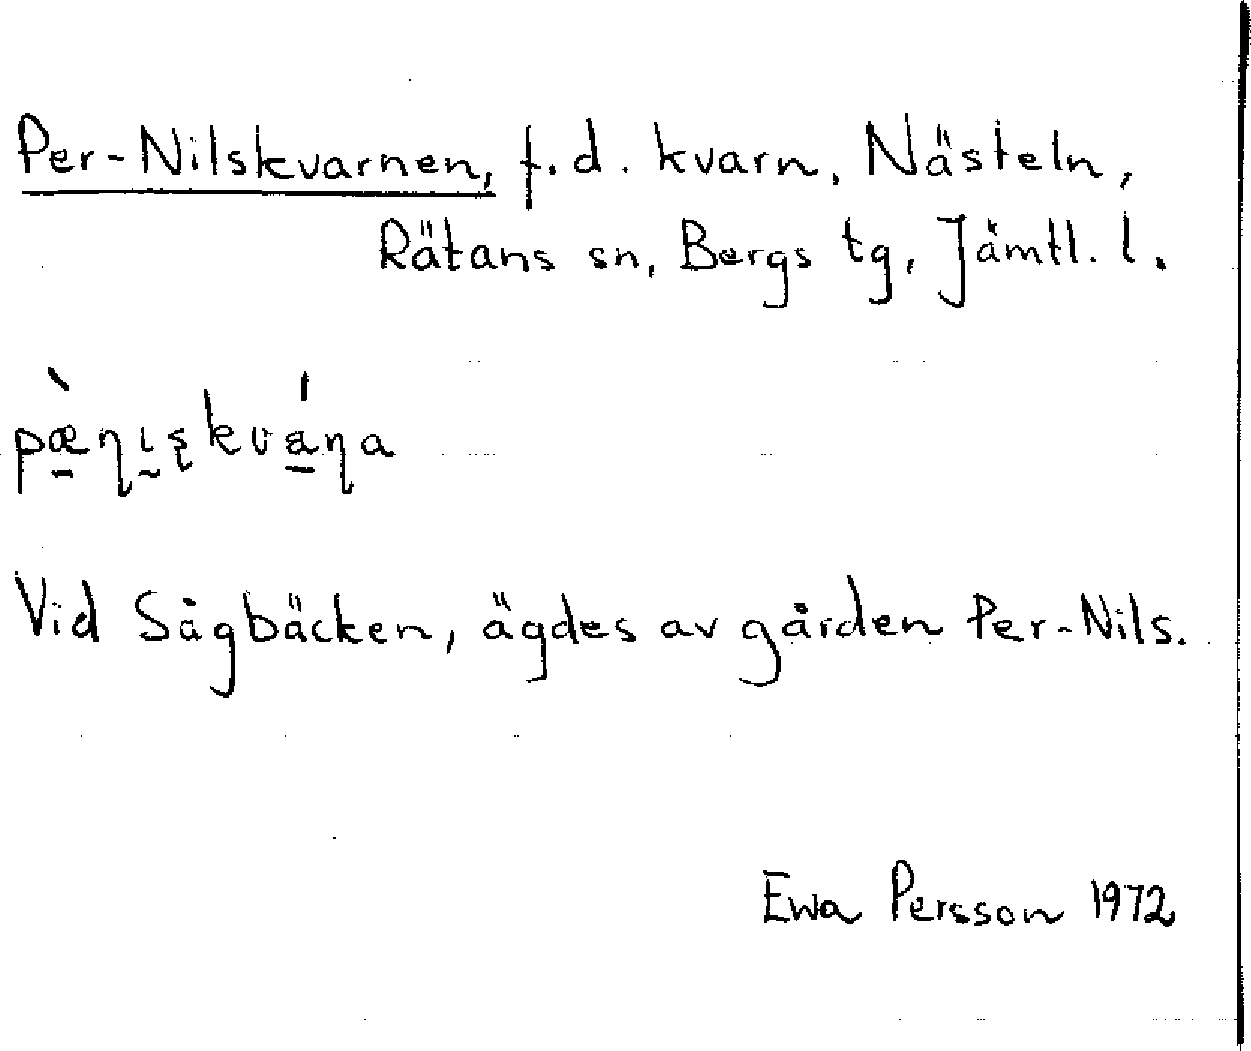 Per-Nilskvarnen, f.d. kvarn, Nästeln,
Rätans sn, Bergs tg, Jämtl. l.
pæ̠̀ɳɩ̰ʂkvá̠ɳa
Vid Sågbäcken, ägdes av gården Per-Nils.
Ewa Persson 1972